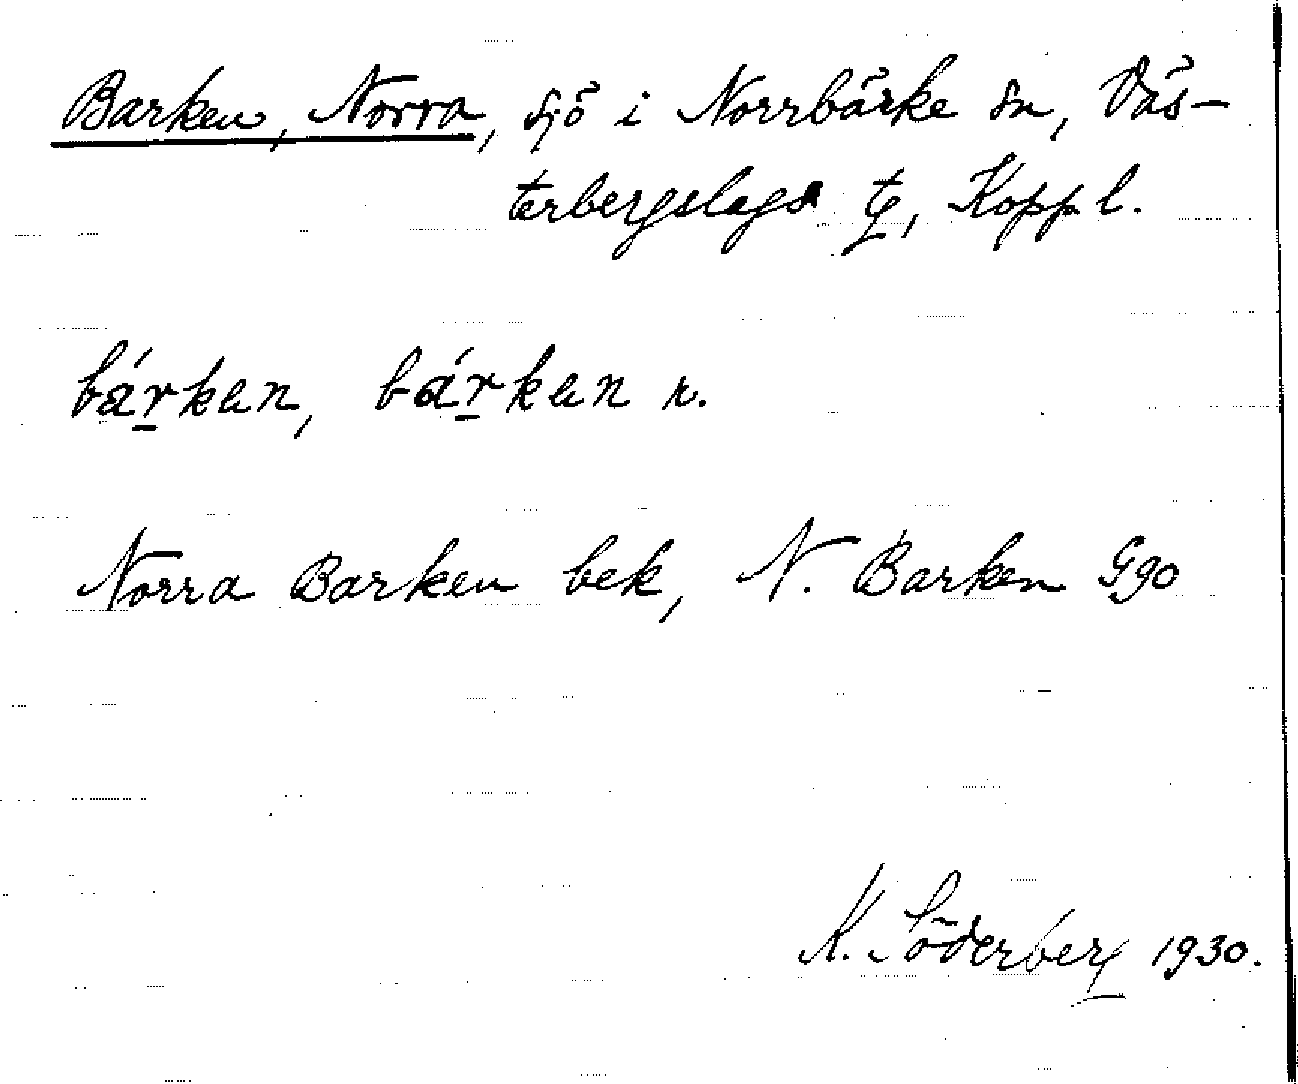 Barken, Norra, sjö i Norrbärke sn, Väs-
terbergslags tg, Kopp l.
bárkan, bárkan n.
Norra Barken bek, N. Barken G90
K. Söderberg 1930.